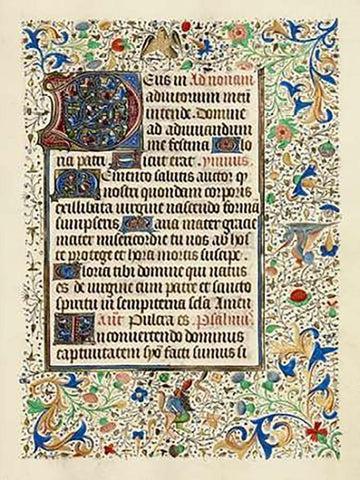 Deus in Ad nonam
adiutorium meū
intende. Domine
ad adiuuandum
me festina Glo
ria patri. Sicut erat. ymnus.
Memento salutis auctor q̄
nostri quondam corporis
ex illibata uirgine nascendo formā
sumpseris Maria mater gracie
mater misericordie tu nos ab hos
te protege et hora mortis suscipe.
Gloria tibi domine qui natus
es de uirgine cum patre et sancto
spiritu in sempiterna scla Amen
Añt Pulcra es. Psalmus
In conuertendo dominus
captiuitatem syō facti sumus si